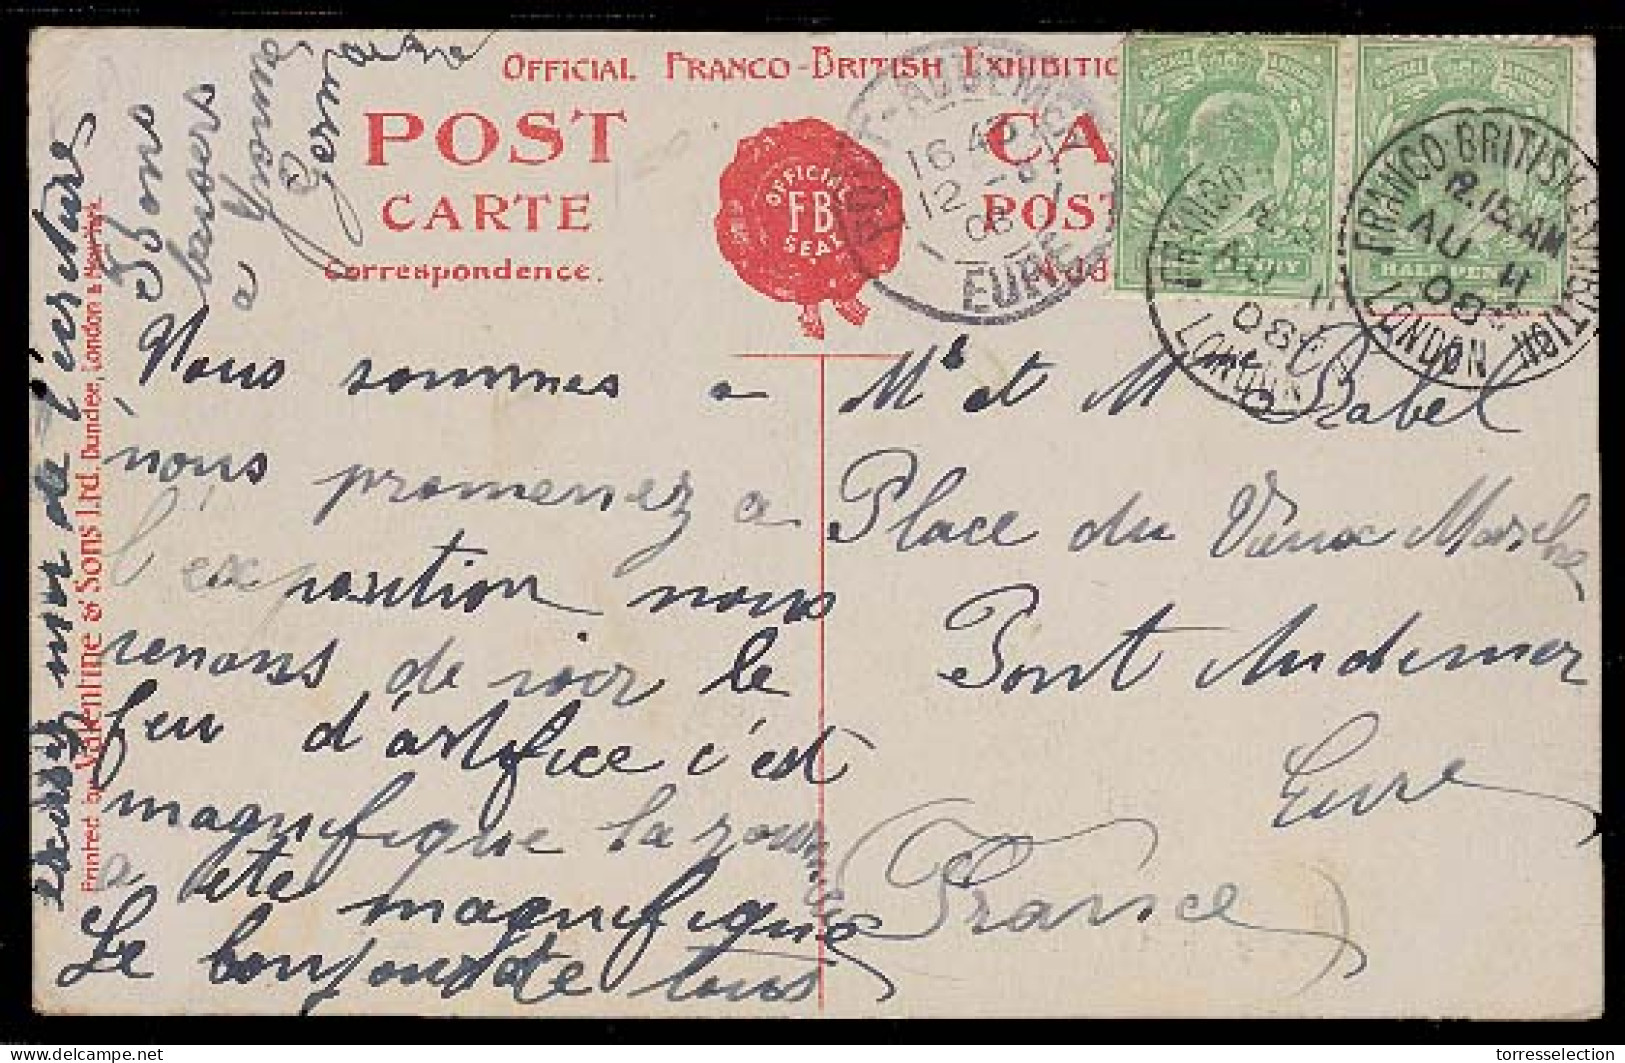 OFFICIAL FRANCO-BRITISH EXHIBITIO
POST
CARTE
Correspondence.
OFFICIAL
FB
SEAL
CA
POST
PONT-AUDEMER
16 45
12 - 8
08
EURE
FRANCO-BRITISH EXHIBITION
12.15 AM
AU 11
08
LONDON
FRANCO
AU 11
08
LONDON
HALF PEN
PENNY
Printed by Valentine & Sons Ltd. Dundee, London & Montreal.
Bons
baisers
a Yvonne
Germaine
Vous sommes a
nous promenez a
l'exposition nous
venons de voir le
feu d'artifice c'est
magnifique la journée
a été magnifique
Le bonjour de tous
Mr et Mme Babel
Place du Vieux Marche
Pont Audemer
Eure
France
torresselection